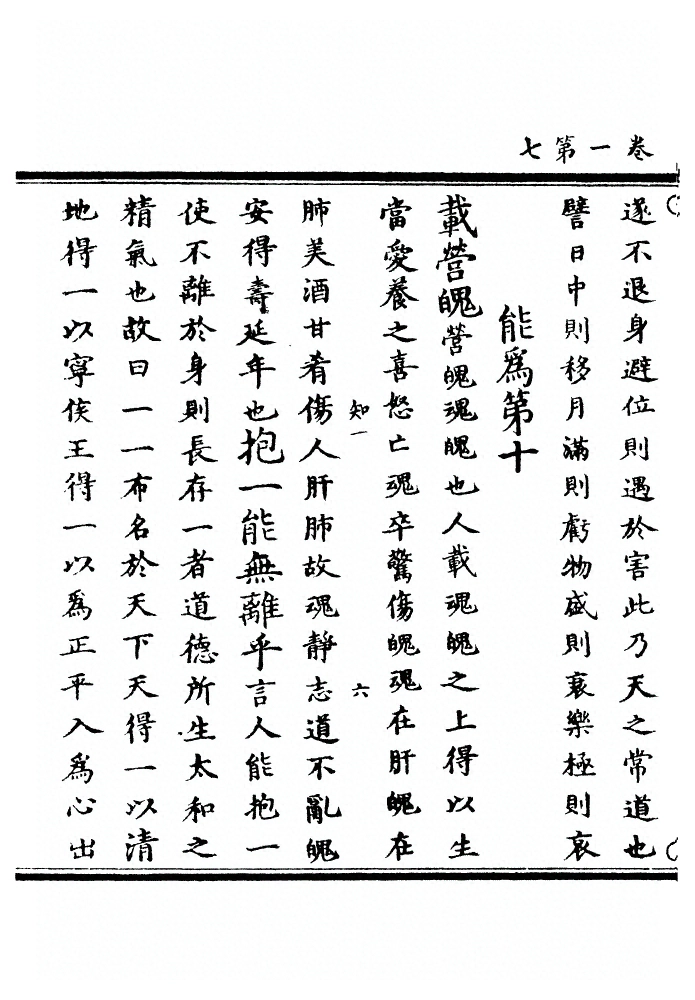 卷一第七
遂不退身避位則遇於害此乃天之常道也
譬日中則移月滿則虧物盛則衰樂極則哀
能為第十
載營魄營魄魂魄也人載魂魄之上得以生
當愛養之喜怒亡魂卒驚傷魄魂在肝魄在
知一 六
肺美酒甘肴傷人肝肺故魂靜志道不亂魄
安得壽延年也抱一能無離乎言人能抱一
使不離於身則長存一者道德所生太和之
精氣也故曰一一布名於天下天得一以清
地得一以寧侯王得一以為正平入為心出